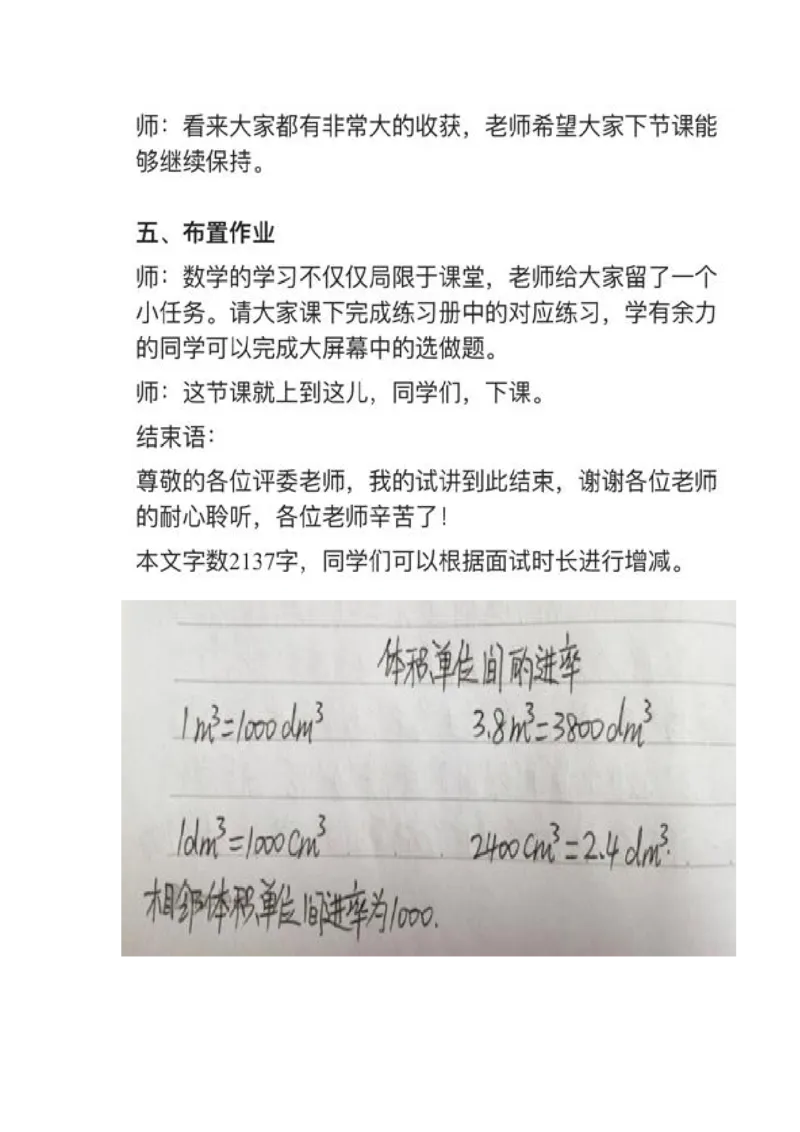 师：看来大家都有非常大的收获，老师希望大家下节课能
够继续保持。
五、布置作业
师：数学的学习不仅仅局限于课堂，老师给大家留了一个
小任务。请大家课下完成练习册中的对应练习，学有余力
的同学可以完成大屏幕中的选做题。
师：这节课就上到这儿，同学们，下课。
结束语：
尊敬的各位评委老师，我的试讲到此结束，谢谢各位老师
的耐心聆听，各位老师辛苦了！
本文字数2137字，同学们可以根据面试时长进行增减。
体积单位间的进率
1m³=1000dm³ 3.8m³=3800dm³
1dm³=1000cm³ 2400cm³=2.4dm³.
相邻体积单位间进率为1000.